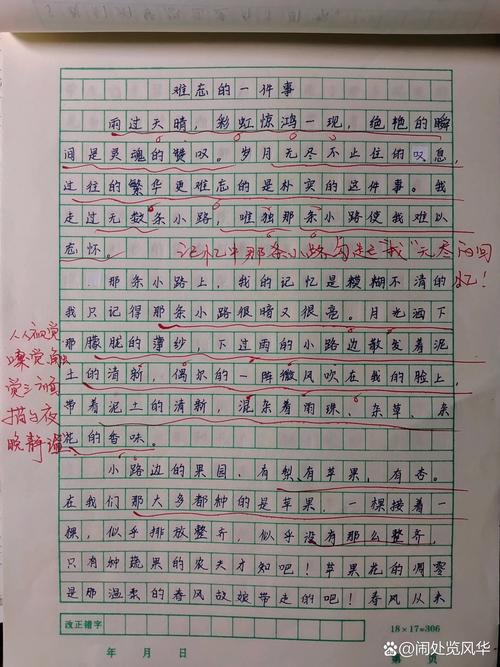 难忘的一件事
雨过天晴，彩虹惊鸿一现，绝艳的瞬
间是灵魂的赞叹。岁月无尽不止住的叹息，
过往的繁华更难忘的是朴实的这件事。我
走过无数条小路，唯独那条小路使我难以
忘怀。
记忆中那条小路勾起"我"无尽的回忆！
那条小路上，我的记忆是模糊不清的
我只记得那条小路很暗又很亮。月光洒下
那朦胧的薄纱，下过雨的小路边散发着泥
土的清新，偶尔的一阵微风吹在我的脸上，
带着泥土的清新，混杂着雨珠、杂草、
花的香味。
人从视觉
嗅觉触
觉三方面
描写夜
晚静谧
小路边的果园，有梨有苹果，有杏。
在我们那大多都种的是苹果，一棵接着一
棵，似乎排放整齐，似乎没有那么整齐，
只有种蔬果的农夫才知吧！苹果花的凋零
是那温柔的春风故娘带走的吧！春风从来
改正错字
18×17=306
年 月 日
第 页
@闹处览风华